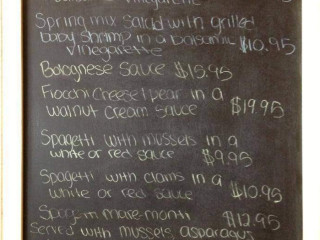 Spring mix salad with grilled
baby shrimp in a balsamic
vinegarette $10.95
Bolognese Sauce $15.95
Fiocchi cheese & pear in a
walnut cream sauce $19.95
Spagetti with mussels in a
white or red sauce $9.95
Spagetti with clams in a
white or red sauce $10.95
mare-monti $12.95
served with mussels, asparagus